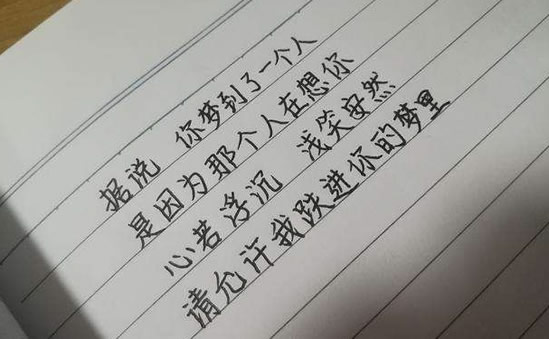 据说 你梦到了一个人
是因为那个人在想你
心若浮沉 浅笑安然
请允许我跌进你的梦里